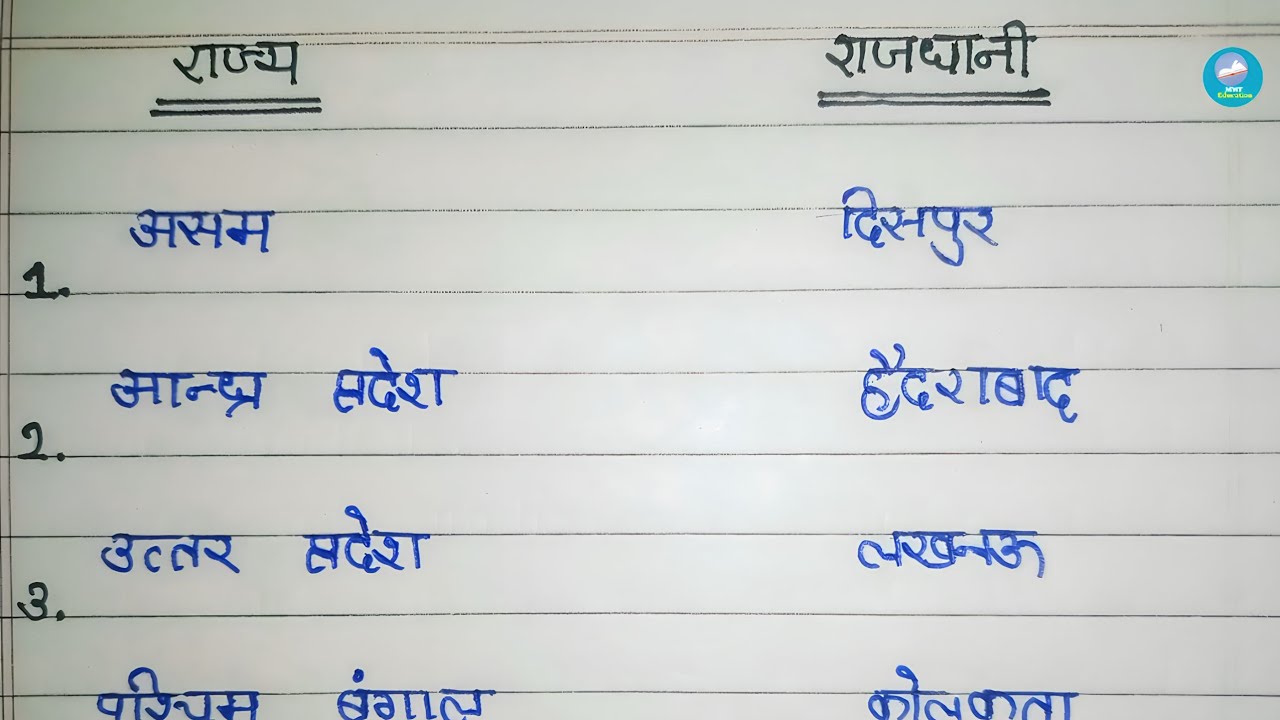 राज्य राजधानी
MWT
Education
असम दिसपुर
1.
आन्ध्र प्रदेश हैदराबाद
2.
उत्तर प्रदेश लखनऊ
3.
पश्चिम बंगाल कोलकता